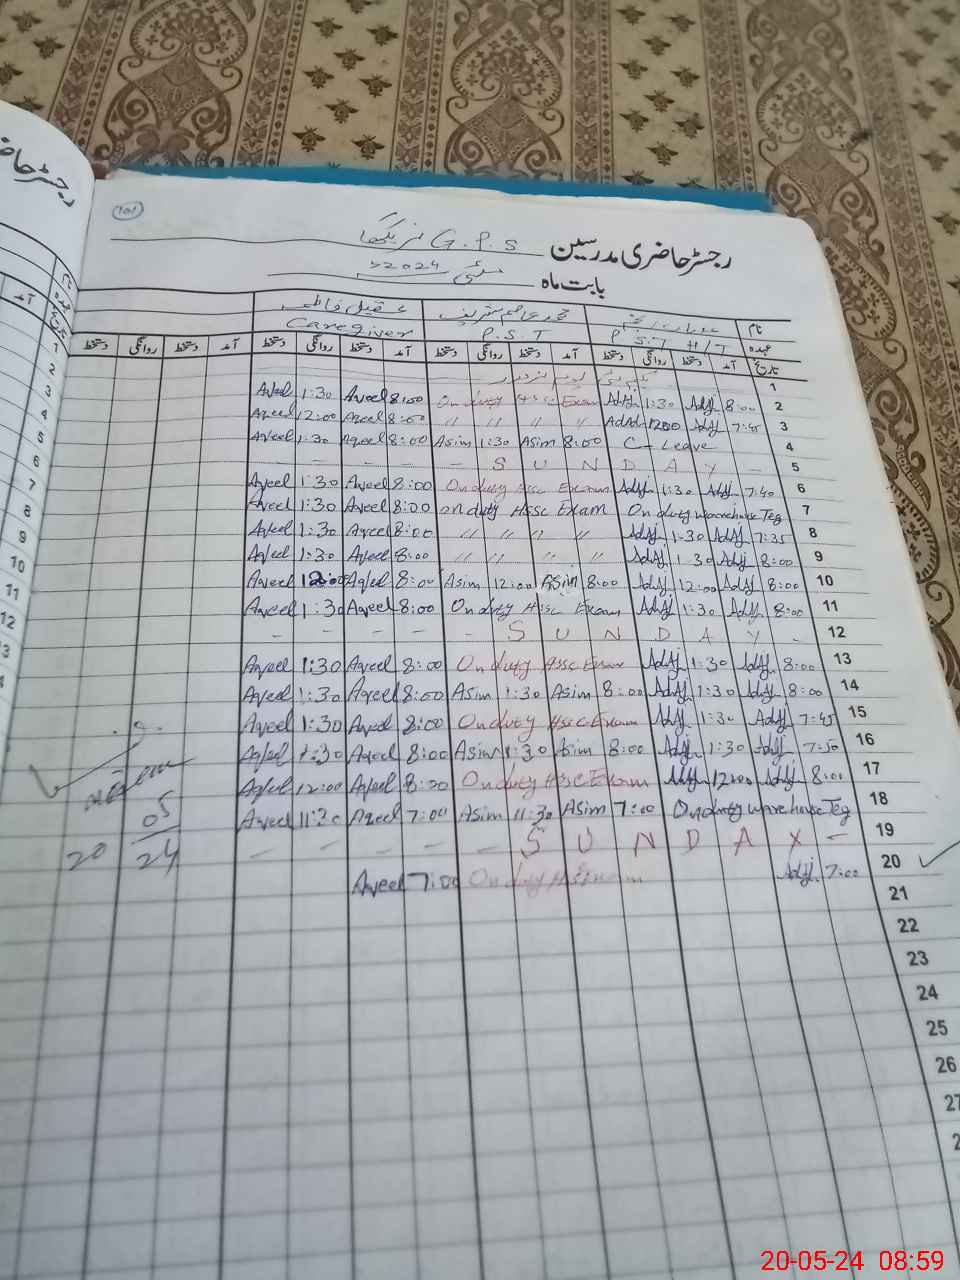 رجسٹر حاضری مدرسین G.P.S
بابت ماہ مئی 2024ء
نام محمد عاصم شریف عقیل فاطمہ
عہدہ P.S.T H/T P.S.T Caregiver
تاریخ آمد دستخط روانگی دستخط آمد دستخط روانگی دستخط آمد دستخط روانگی دستخط آمد دستخط روانگی دستخط
1
Aqeel 1:30 Aqeel 8:00 On duty Hssc Exam Adj. 1:30 Adj. 8:00 2
Aqeel 12:00 Aqeel 8:00 〃 〃 〃 〃 Adj. 1200 Adj. 7:45 3
Aqeel 1:30 Aqeel 8:00 Asim 1:30 Asim 8:00 C-Leave 4
- - - - - S U N D A Y - 5
Aqeel 1:30 Aqeel 8:00 On duty Hssc Exam Adj. 1:30 Adj. 7:40 6
Aqeel 1:30 Aqeel 8:00 On duty Hssc Exam On duty warehouse Teg 7
Aqeel 1:30 Aqeel 8:00 〃 〃 〃 〃 Adj. 1:30 Adj. 7:35 8
Aqeel 1:30 Aqeel 8:00 〃 〃 〃 〃 Adj. 1:30 Adj. 8:00 9
Aqeel 12:00 Aqeel 8:00 Asim 12:00 Asim 8:00 Adj. 12:00 Adj. 8:00 10
Aqeel 1:30 Aqeel 8:00 On duty Hssc Exam Adj. 1:30 Adj. 8:00 11
- - - - - S U N D A Y - 12
Aqeel 1:30 Aqeel 8:00 On duty Hssc Exam Adj. 1:30 Adj. 8:00 13
Aqeel 1:30 Aqeel 8:00 Asim 1:30 Asim 8:00 Adj. 1:30 Adj. 8:00 14
Aqeel 1:30 Aqeel 8:00 On duty Hssc Exam Adj. 1:30 Adj. 7:45 15
Aqeel 1:30 Aqeel 8:00 Asim 1:30 Asim 8:00 Adj. 1:30 Adj. 7:50 16
Aqeel 12:00 Aqeel 8:00 On duty Hssc Exam Adj. 12:00 Adj. 8:00 17
Aqeel 11:30 Aqeel 7:00 Asim 11:30 Asim 7:00 On duty warehouse Teg 18
- - - - - S U N D A Y - 19
Aqeel 7:00 On duty Adj. 7:00 20
21
22
23
24
25
26
27
20 05/24
رجسٹر
آمد
1
2
3
4
5
6
7
8
9
10
11
12
20-05-24 08:59